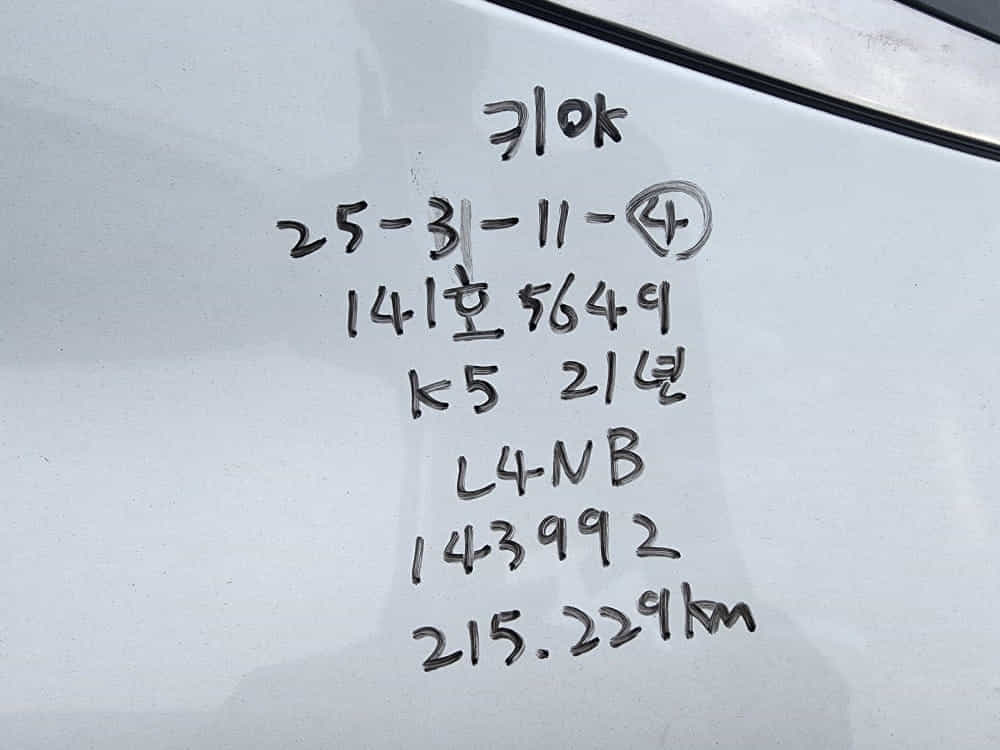 키아
25-31-11-④
141호5649
K5 21년
L4NB
143992
215.229km